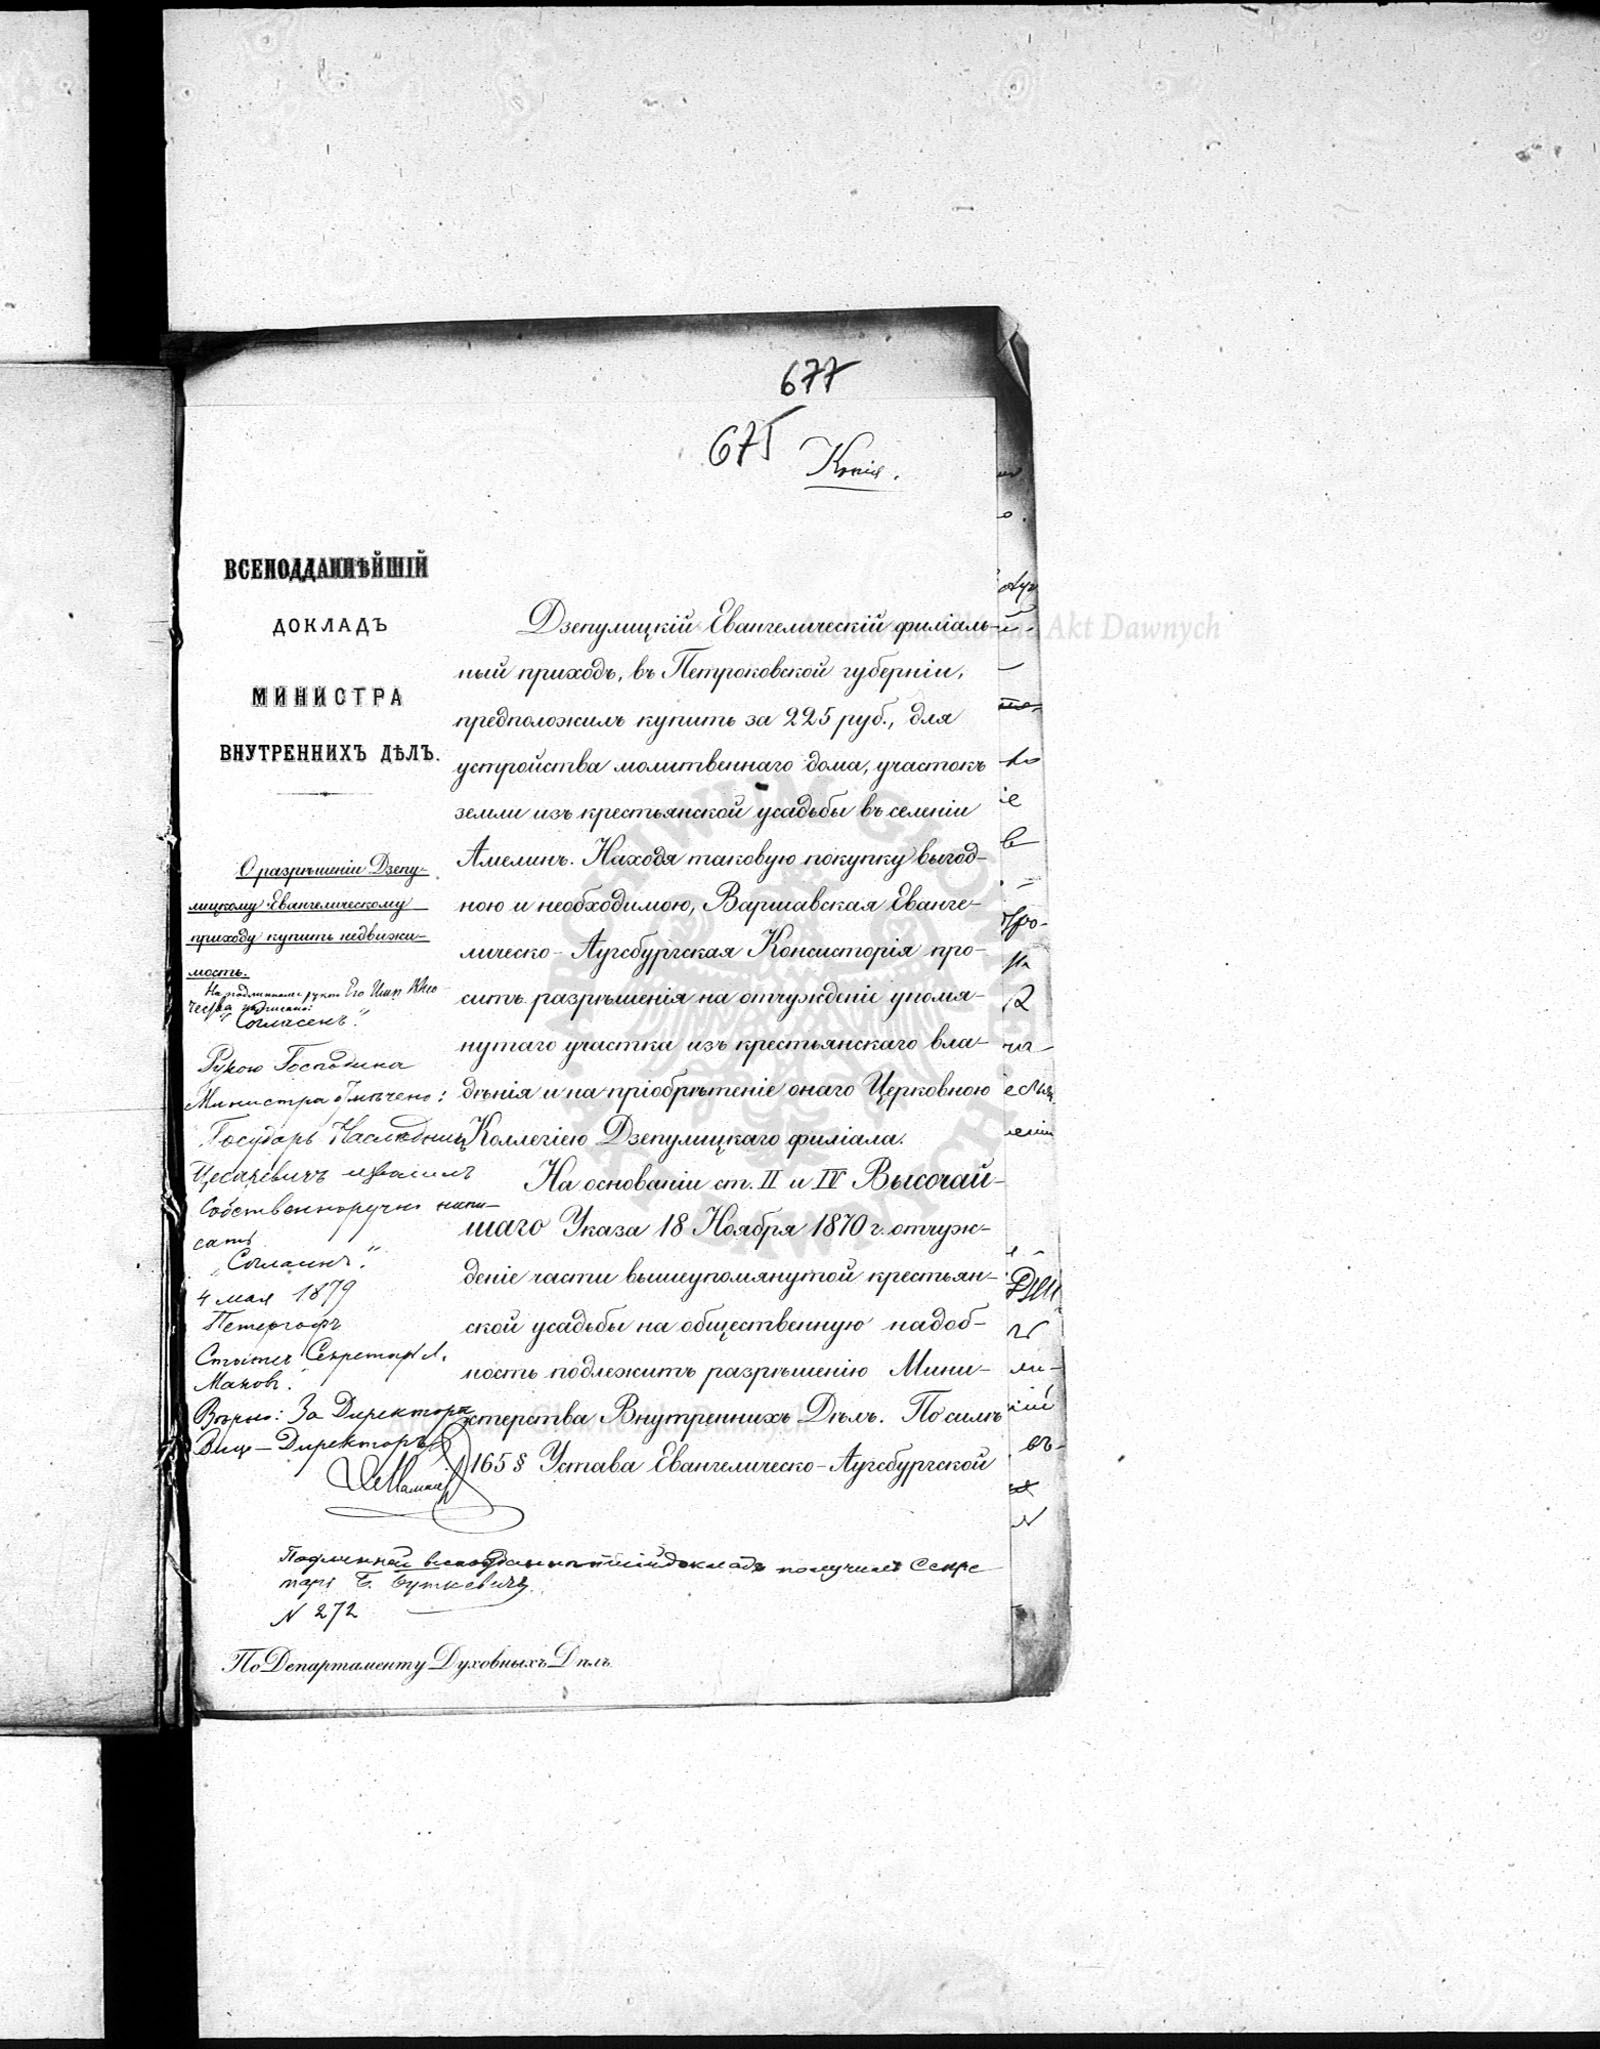 677
675
Копія.
ВСЕПОДДАННѢЙШІЙ
ДОКЛАДЪ
МИНИСТРА
ВНУТРЕННИХЪ ДѢЛЪ.
О разрѣшеніи Дзепу-
лицкому Евангелическому
приходу купить недвижи-
мость.
На подлинномъ рукою Его Имп. Высо-
чества написано:
"Согласенъ".
Рукою Господина
Министра отмѣчено:
Государь Наслѣдникъ
Цесаревичъ изволилъ
собственноручно напи-
сать
"Согласенъ".
4 мая 1879
Петергофъ
Статсъ Секретарь Л.
Маковъ.
Вѣрно: За Директора
Вице-Директоръ
Дзепулицкій Евангелическій филіаль-
ный приходъ, въ Петроковской губерніи,
предположилъ купить за 225 руб., для
устройства молитвеннаго дома, участокъ
земли изъ крестьянской усадьбы въ селеніи
Амелинъ. Находя таковую покупку выгод-
ною и необходимою, Варшавская Еванге-
лическо-Аугсбургская Консисторія про-
ситъ разрѣшенія на отчужденіе упомя-
нутаго участка изъ крестьянскаго вла-
дѣнія и на пріобрѣтеніе онаго Церковною
Коллегіею Дзепулицкаго филіала.
На основаніи ст. II и IV Высочай-
шаго Указа 18 Ноября 1870 г. отчуж-
деніе части вышеупомянутой крестьян-
ской усадьбы на общественную надоб-
ность подлежитъ разрѣшенію Мини-
стерства Внутреннихъ Дѣлъ. По силѣ
165 § Устава Евангелическо-Аугсбургской
Подлинный всеподданнѣйшій докладъ получилъ Секре-
тарь Б. Буткевичъ.
N 272
По Департаменту Духовныхъ Дѣлъ.
Archiwum Główne Akt Dawnych